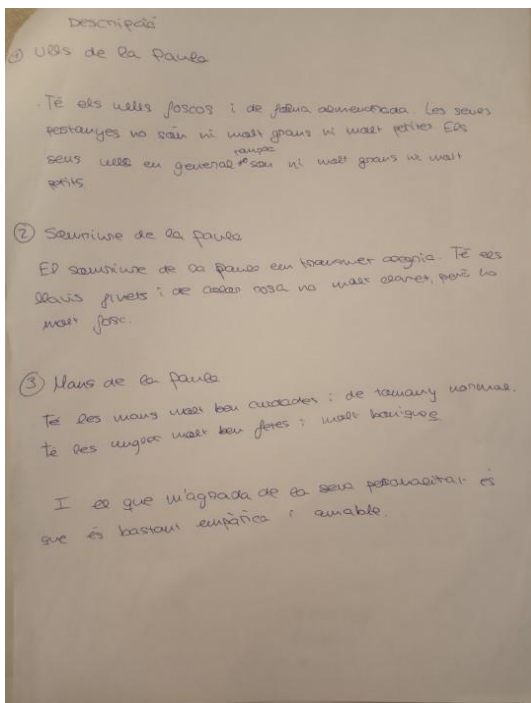 Descripció
① Ulls de la Paula
Té els ulls foscos i de forma atmenclada. Les seves
pestanyes no són ni molt grans ni molt petites Els
seus ulls en general tampoc són ni molt grans ni molt
petits.
② Somriure de la Paula
El somriure de la Paula em transmet alegria. Té els
llavis finets i de color rosa no molt claret, però no
molt fosc.
③ Mans de la Paula
Té les mans molt ben cuidades i de tamany normal.
Té les ungles molt ben fetes i molt boniques
I el que m'agrada de la seva personalitat és
que és bastant empàtica i amable.